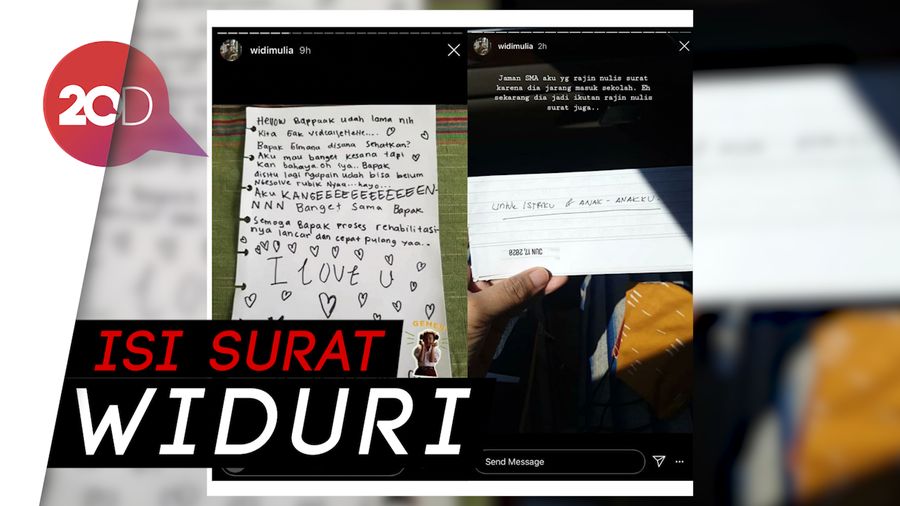 20D
widimulia 9h
Hellow Bappaak udah lama nih
Kita Gak
Bapak Gimana disana sehatkan?
Aku mau banget kesana tapi
kan bahaya oh iya.. Bapak
disitu lagi ngapain udah bisa belum
ngesolve rubik Nyaa...hayo...
Aku KANGEEEEEEEEEEEEEN-
NNN Banget sama Bapak
Semoga Bapak proses rehabilitasi-
nya lancar dan cepat pulang yaa..
I love u
GEMES
widimulia 2h
Jaman SMA aku yg rajin nulis surat
karena dia jarang masuk sekolah. Eh
sekarang dia jadi ikutan rajin nulis
surat juga..
UNTUK ISTRIKU & ANAK - ANAKKU
JUN 17, 2020
Send Message
ISI SURAT
WIDURI